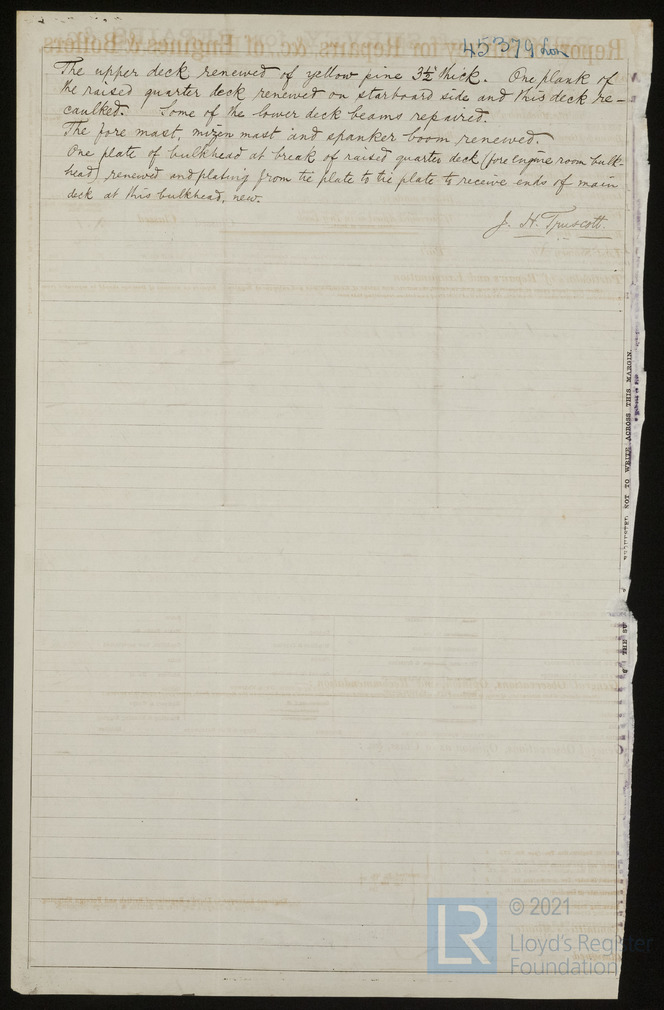 45379 Lon
The upper deck renewed of yellow pine 3½" thick. One plank of
the raised quarter deck renewed on starboard side and this deck re-
caulked. Some of the lower deck beams repaired.
The fore mast, mizen mast and spanker boom renewed.
One plate of bulkhead at break of raised quarter deck (fore Engine room bulk-
head) renewed and plating from tie plate to tie plate to receive ends of main
deck at this bulkhead, new.
J. H. Truscott.
NOT TO WRITE ACROSS THIS MARGIN.
THE SU
LR
© 2021
Lloyd's Register
Foundation